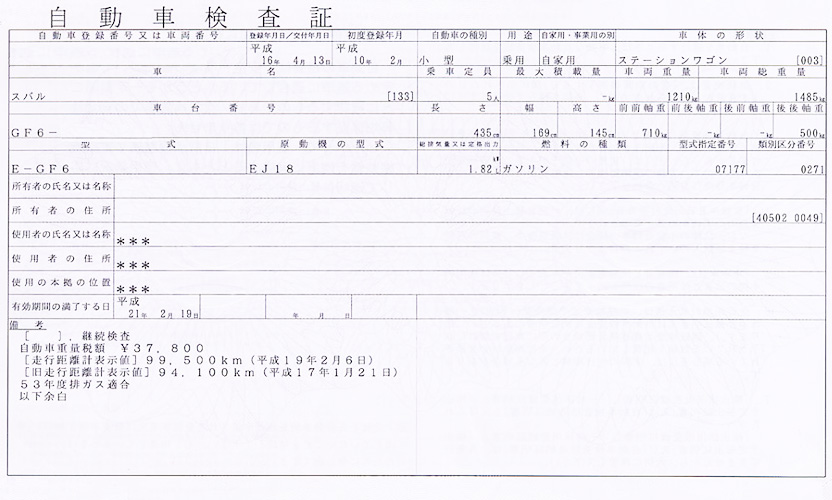 自動車検査証
自動車登録番号又は車両番号 登録年月日/交付年月日 初度登録年月 自動車の種別 用途 自家用・事業用の別 車体の形状
平成 16年 4月 13日 平成 10年 2月 小型 乗用 自家用 ステーションワゴン [003]
車名 乗車定員 最大積載量 車両重量 車両総重量
スバル [133] 5人 -kg 1210kg 1485kg
車台番号 長さ 幅 高さ 前前軸重 前後軸重 後前軸重 後後軸重
GF6- 435cm 169cm 145cm 710kg -kg -kg 500kg
型式 原動機の型式 総排気量又は定格出力 燃料の種類 型式指定番号 類別区分番号
E-GF6 EJ18 kW 1.82L ガソリン 07177 0271
所有者の氏名又は名称
所有者の住所 [40502 0049]
使用者の氏名又は名称 ***
使用者の住所 ***
使用の本拠の位置 ***
有効期間の満了する日 平成 21年 2月 19日 年 月 日
備考
[ ],継続検査
自動車重量税額 ¥37,800
[走行距離計表示値]99,500km(平成19年2月6日)
[旧走行距離計表示値]94,100km(平成17年1月21日)
53年度排ガス適合
以下余白